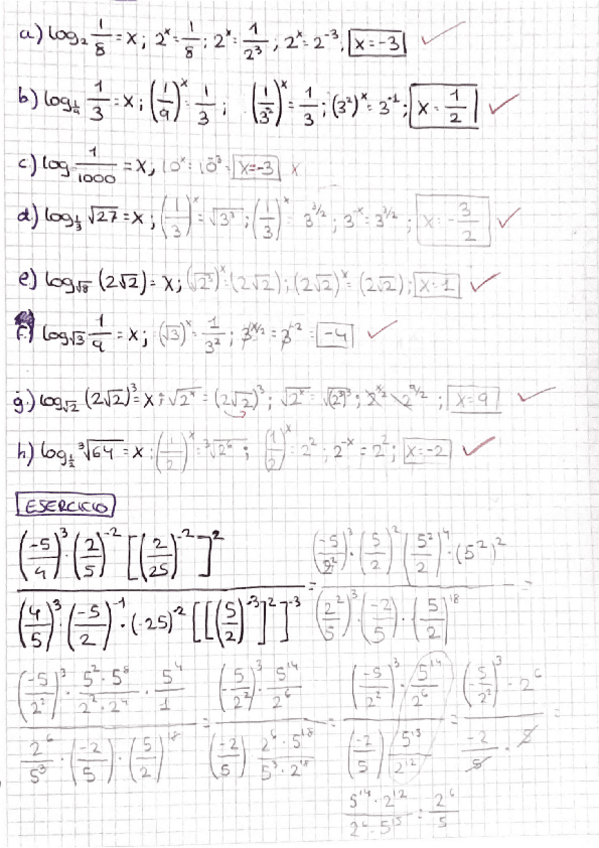 a) log₂ 1/8 = x; 2ˣ = 1/8; 2ˣ = 1/2³; 2ˣ = 2⁻³, x = -3 ✓
b) log_{1/9} 1/3 = x; (1/9)ˣ = 1/3; (1/3²)ˣ = 1/3; (3²)ˣ = 3⁻¹; x = 1/2 ✓
c) log 1/1000 = x, 10ˣ = 10⁻³ = x = -3 x
d) log_{1/3} √27 = x; (1/3)ˣ = √3³; (1/3)ˣ = 3^{3/2}; 3⁻ˣ = 3^{3/2}; x = -3/2 ✓
e) log_{√8} (2√2) = x; (√2³)ˣ = (2√2); (2√2)ˣ = (2√2); x = 1 ✓
f) log_{√3} 1/9 = x; (√3)ˣ = 1/3²; 3^{x/2} = 3⁻² = -4 ✓
g) log_{√2} (2√2)³ = x; √2ˣ = (2√2)³; √2ˣ = √(2³)³; 2^{x/2} = 2^{9/2}; x = 9 ✓
h) log_{1/2} ³√64 = x; (1/2)ˣ = ³√2⁶; (1/2)ˣ = 2²; 2⁻ˣ = 2²; x = -2 ✓
ESERCICIO
(-5/4)³ · (2/5)⁻² [[(2/25)⁻²]]² / (4/5)³ · (-5/2)⁻¹ · (-25)⁻² [[(5/2)⁻³]²]⁻³ = (-5/2²)³ · (5/2)² (5²/2)⁴ · (5²)² / (2²/5)³ · (-2/5) · (5/2)¹⁸ =
(-5/2²)³ · 5² · 5⁸/2² · 2⁴ · 5⁴/1 / 2⁶/5³ · (-2/5) · (5/2)¹⁸ = (-5/2²)³ · 5¹⁴/2⁶ / (-2/5) · 2⁶ · 5¹⁸/5³ · 2¹⁸ = (-5/2²)³ · 5¹⁴/2⁶ / (-2/5) 5¹⁵/2¹² = (-5/2²)³ · 2⁶ / -2/5 · 5 =
5¹⁴ · 2¹²/2⁶ · 5¹⁵ = 2⁶/5